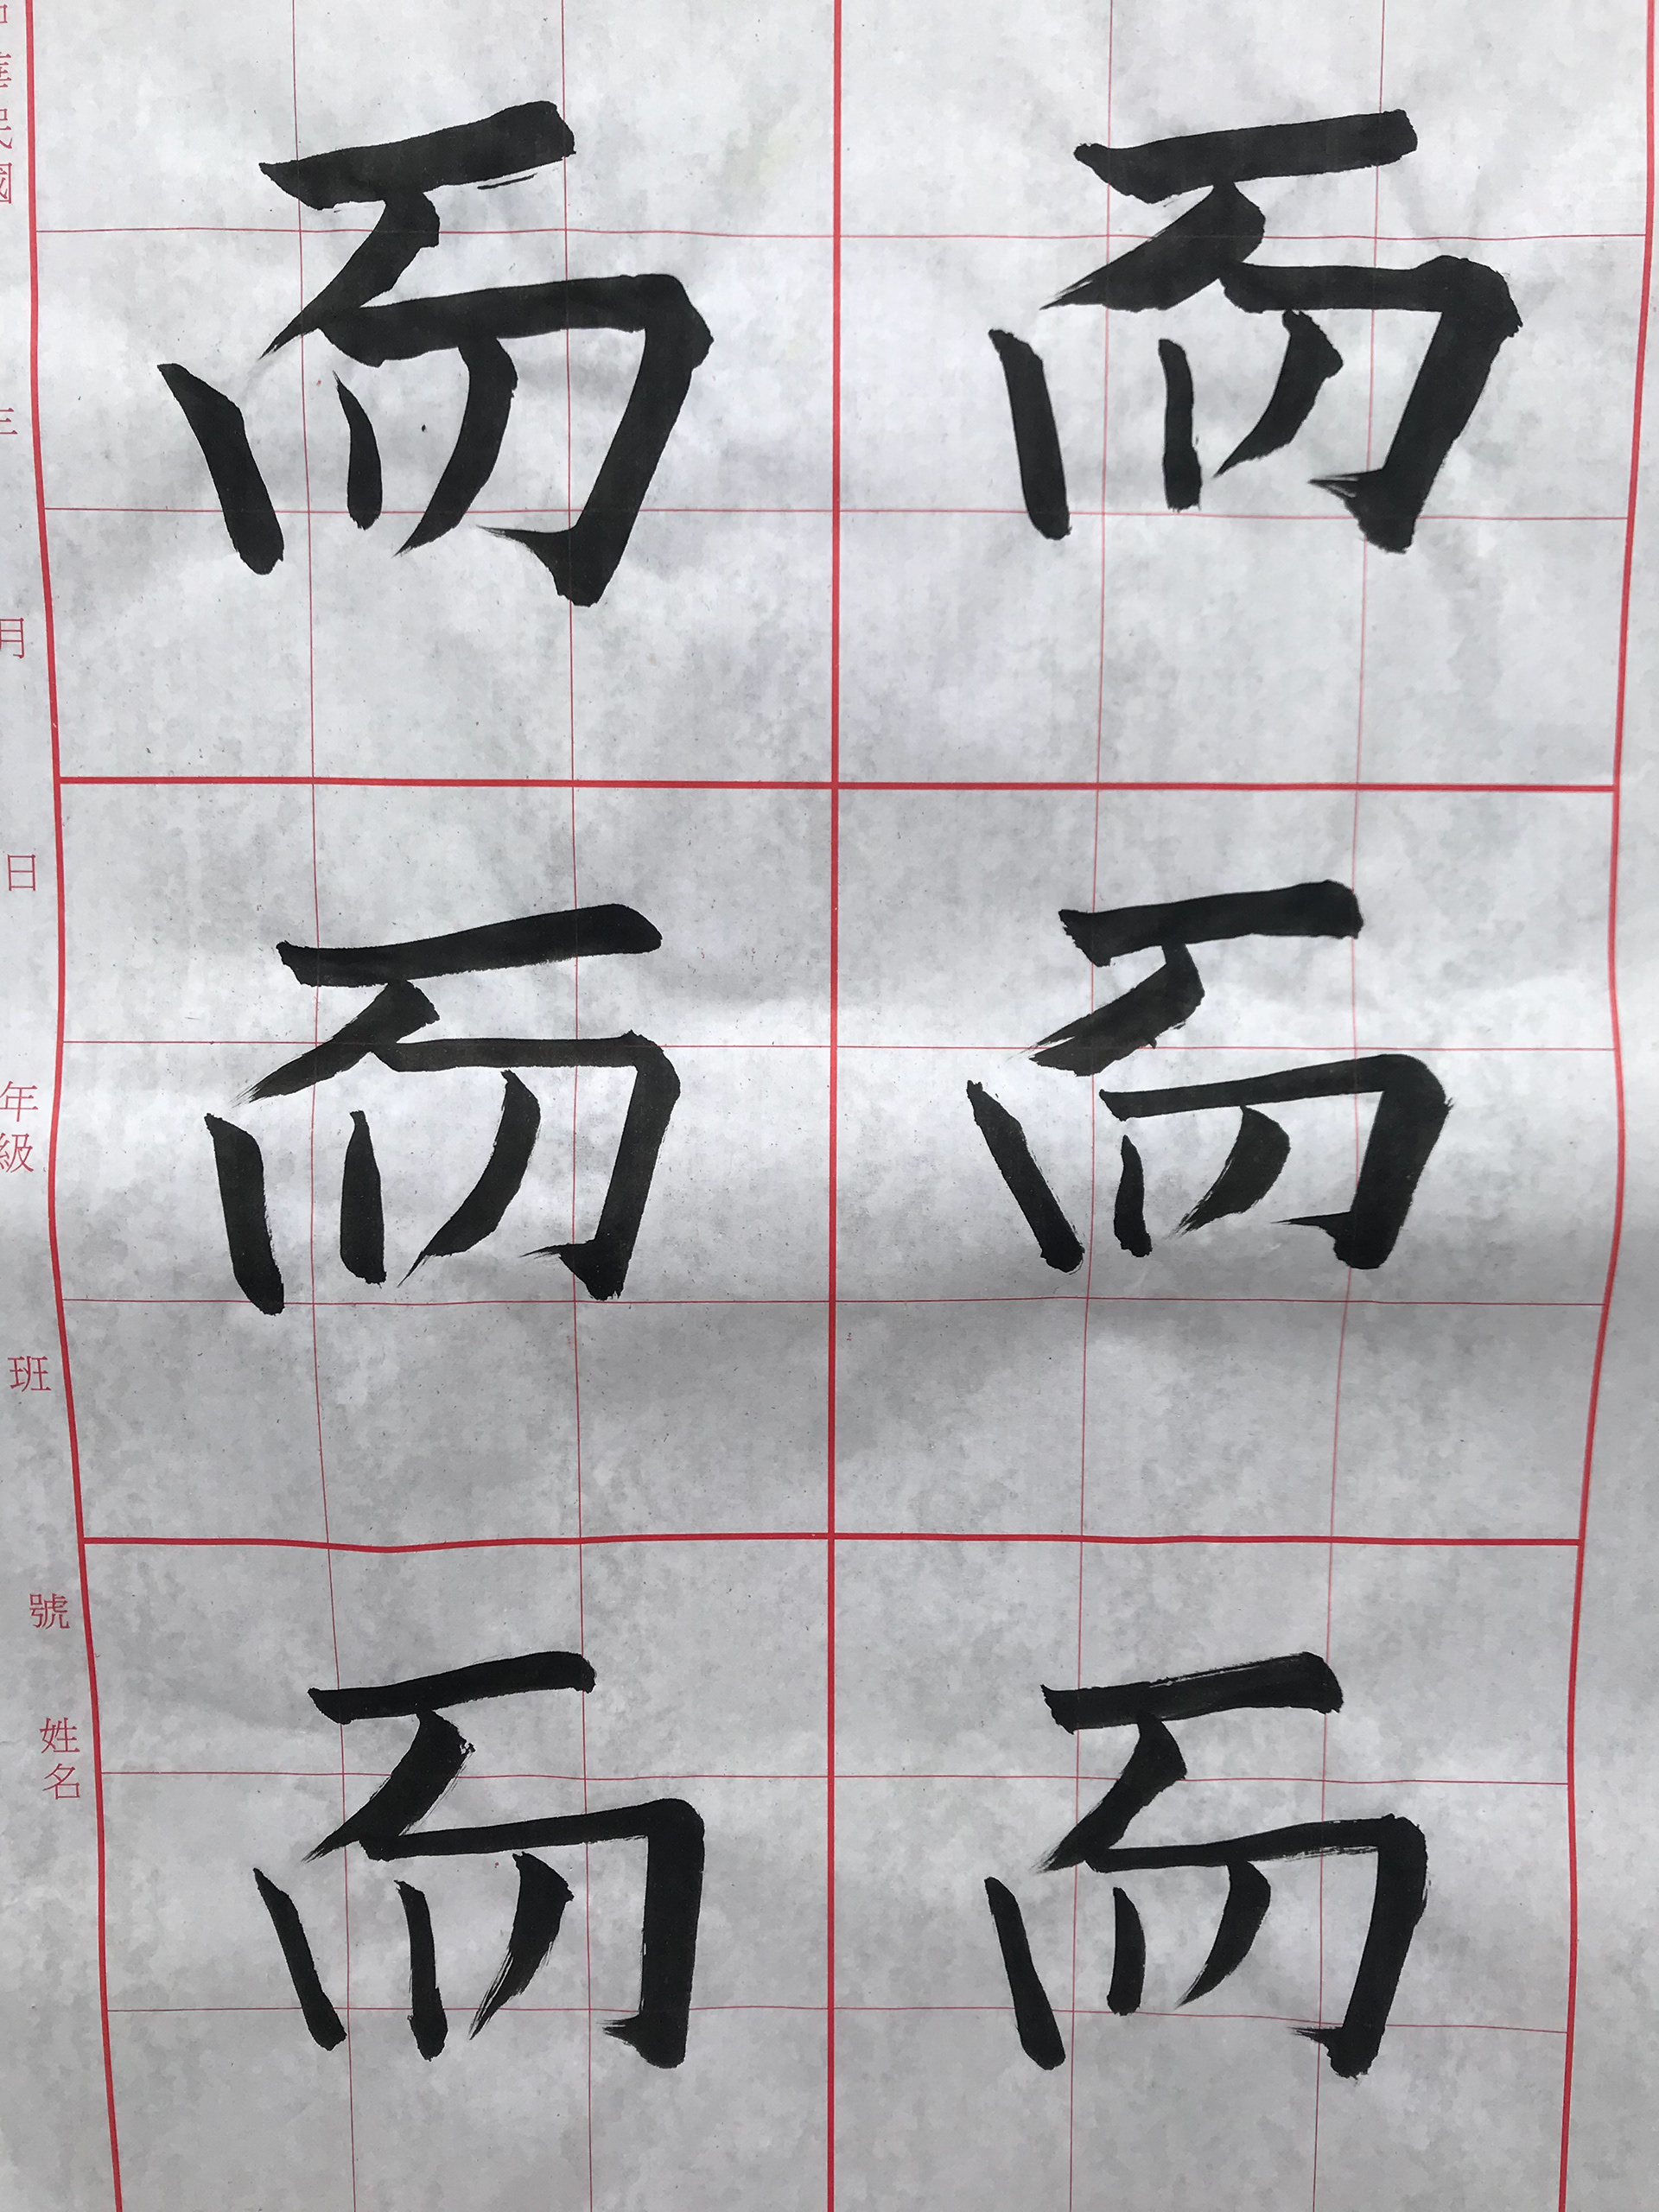 而
而
而
而
而
而
中華民國
年
月
日
年級
班
號
姓名